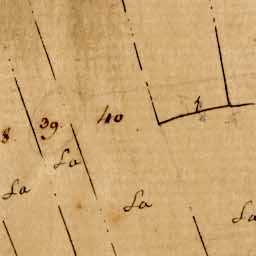 8 39 40
La
La
La
La